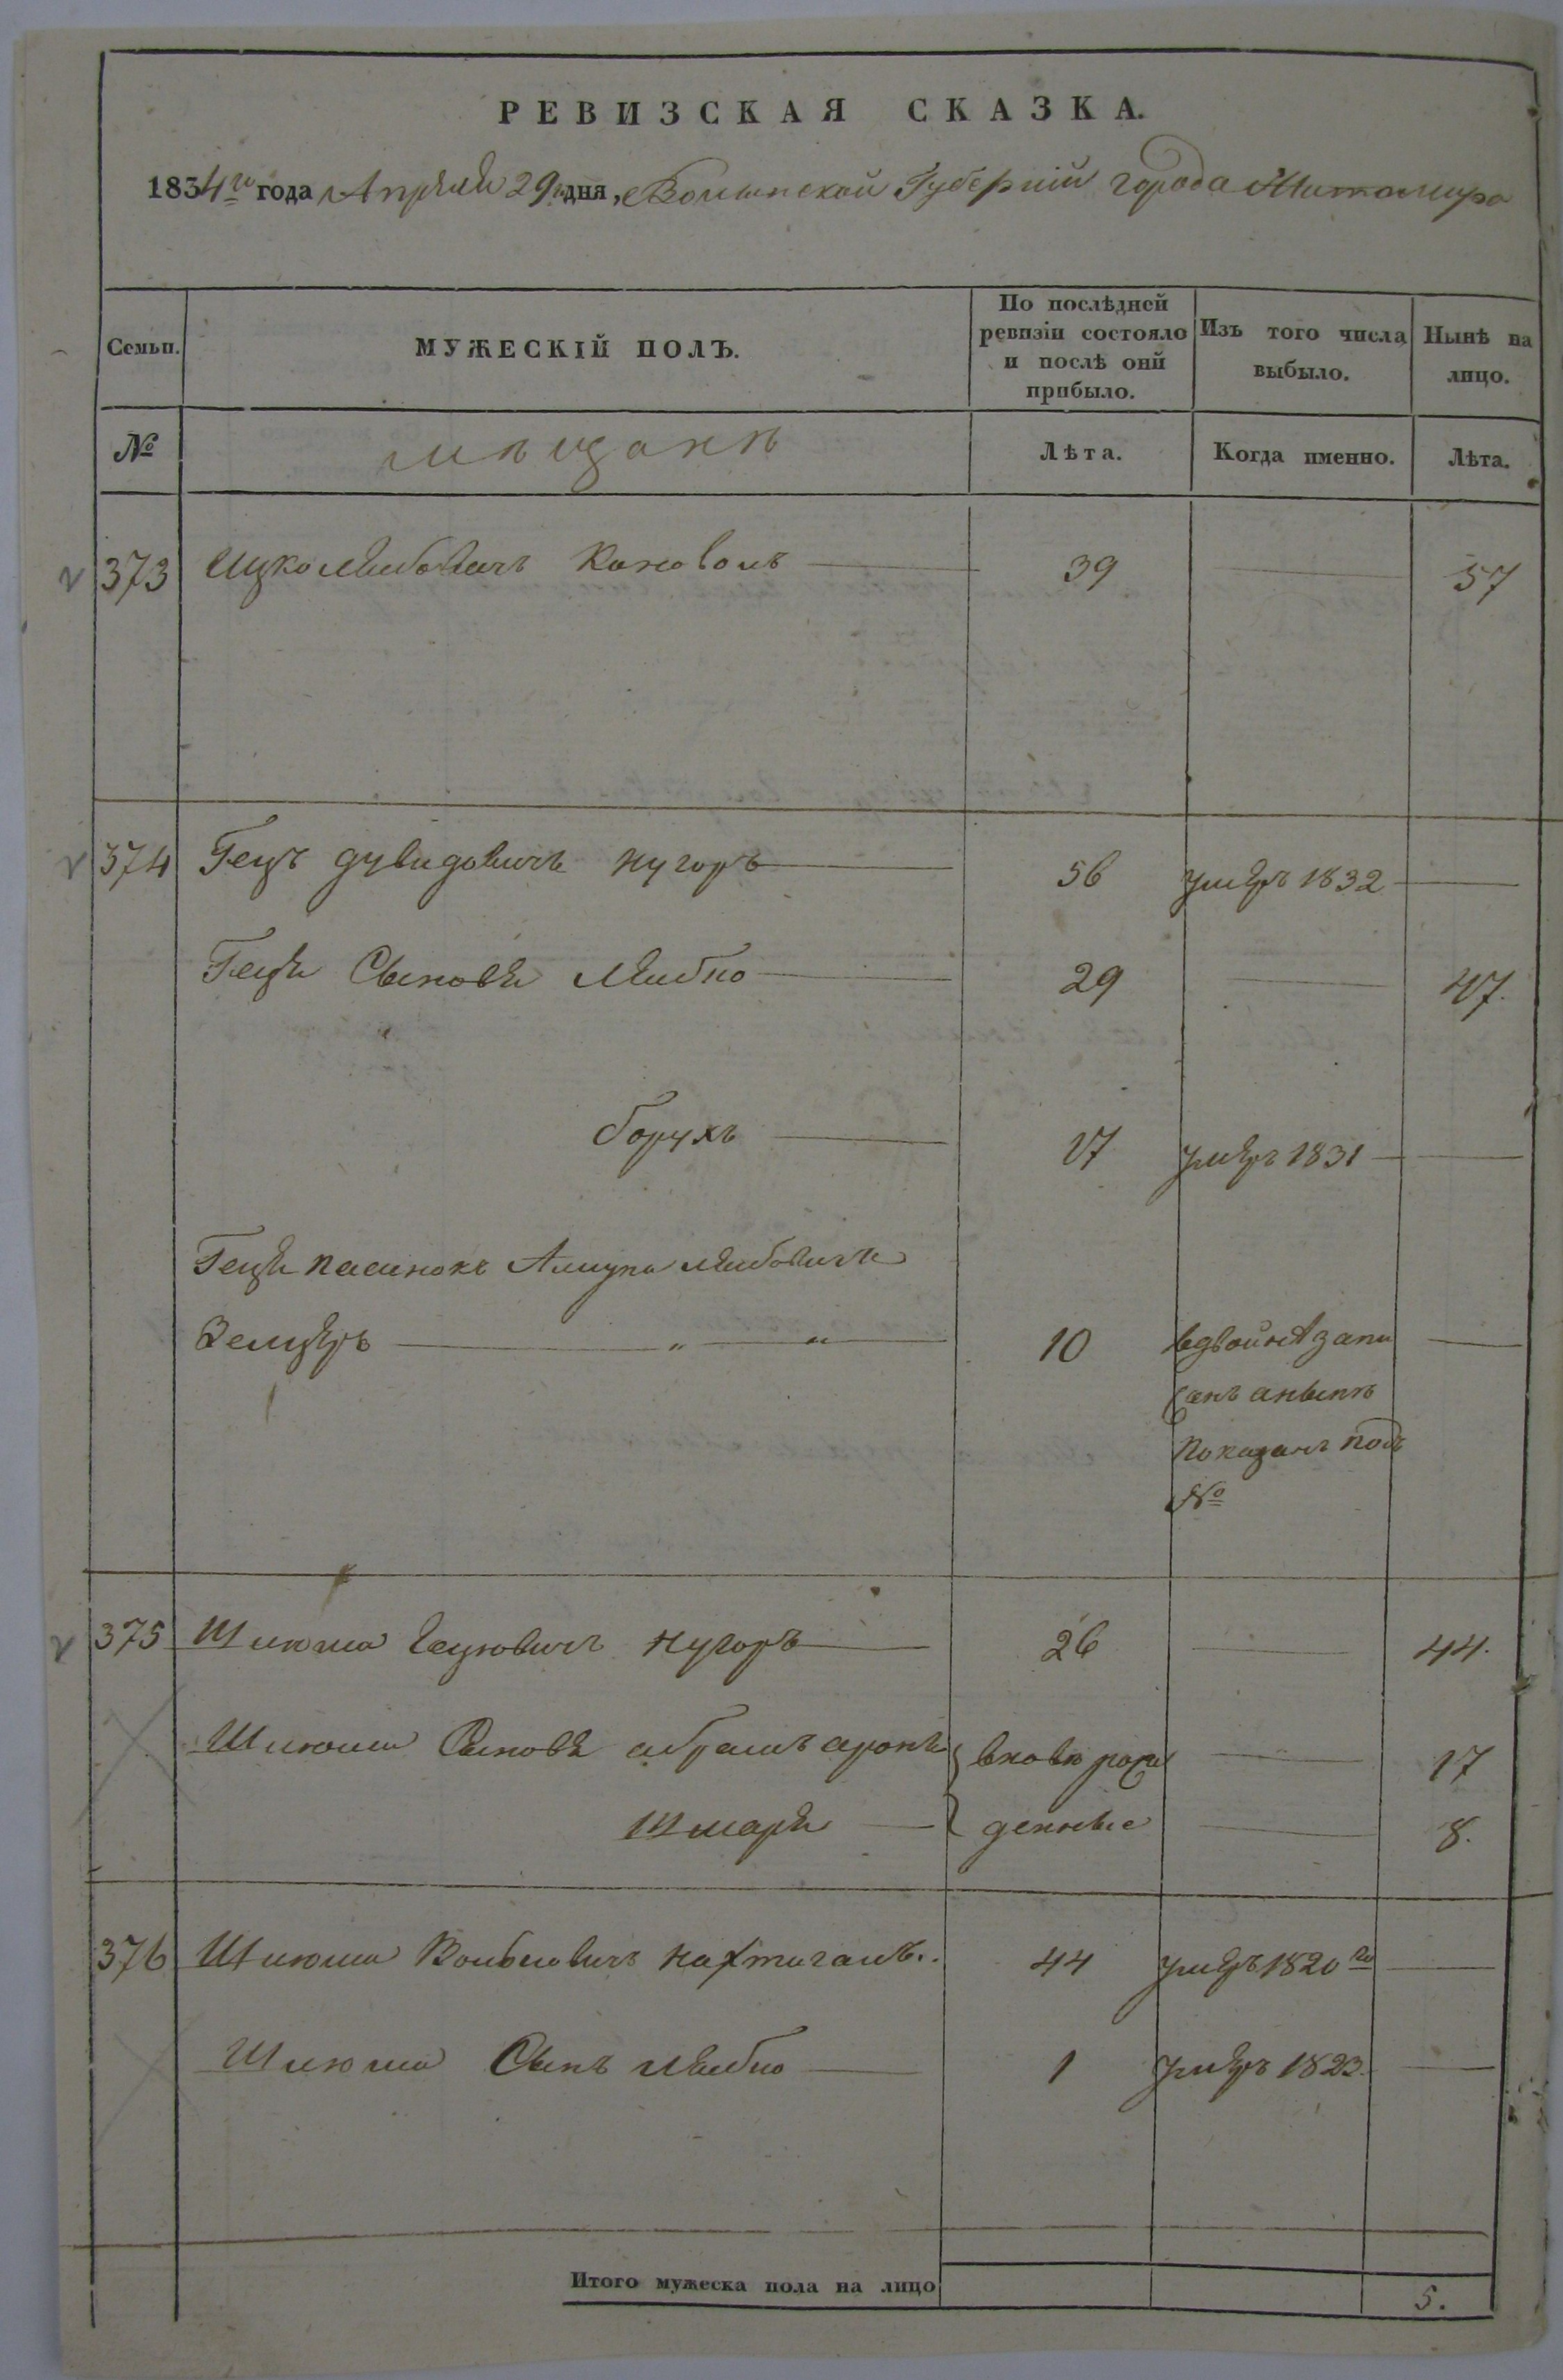 РЕВИЗСКАЯ СКАЗКА.
1834го года Апреля 29 дня, Волынской Губернiи города Житомира
Семьи. МУЖЕСКІЙ ПОЛЪ. По послѣдней ревизіи состояло и послѣ оній прибыло. Изъ того числа выбыло. Нынѣ на лицо.
№ мѣщанѣ Лѣта. Когда именно. Лѣта.
373 Ицко Лейбовичъ Коновалъ 39 57
374 Гецъ Дувидовичъ Нугоръ 56 умеръ 1832
Геця Сыновя Лейбко 29 47.
Борухъ 17 умеръ 1831
Геця пасинокъ Лейбовичъ
Зельцеръ " " 10 вдвойнѣ запи
санъ анынѣ
показанъ подъ
№
375 Шлюма Гецковичъ Нугоръ 26 44.
Шлюми Сыновя абрамъ аронъ вновь рож 17
Шмаря денные 8.
376 Шлюма Вольбовичъ Нахтигаль. 44 умеръ 1820го
Шлюма Сынъ Лейбко 1 умеръ 1823.
Итого мужеска пола на лицо 5.